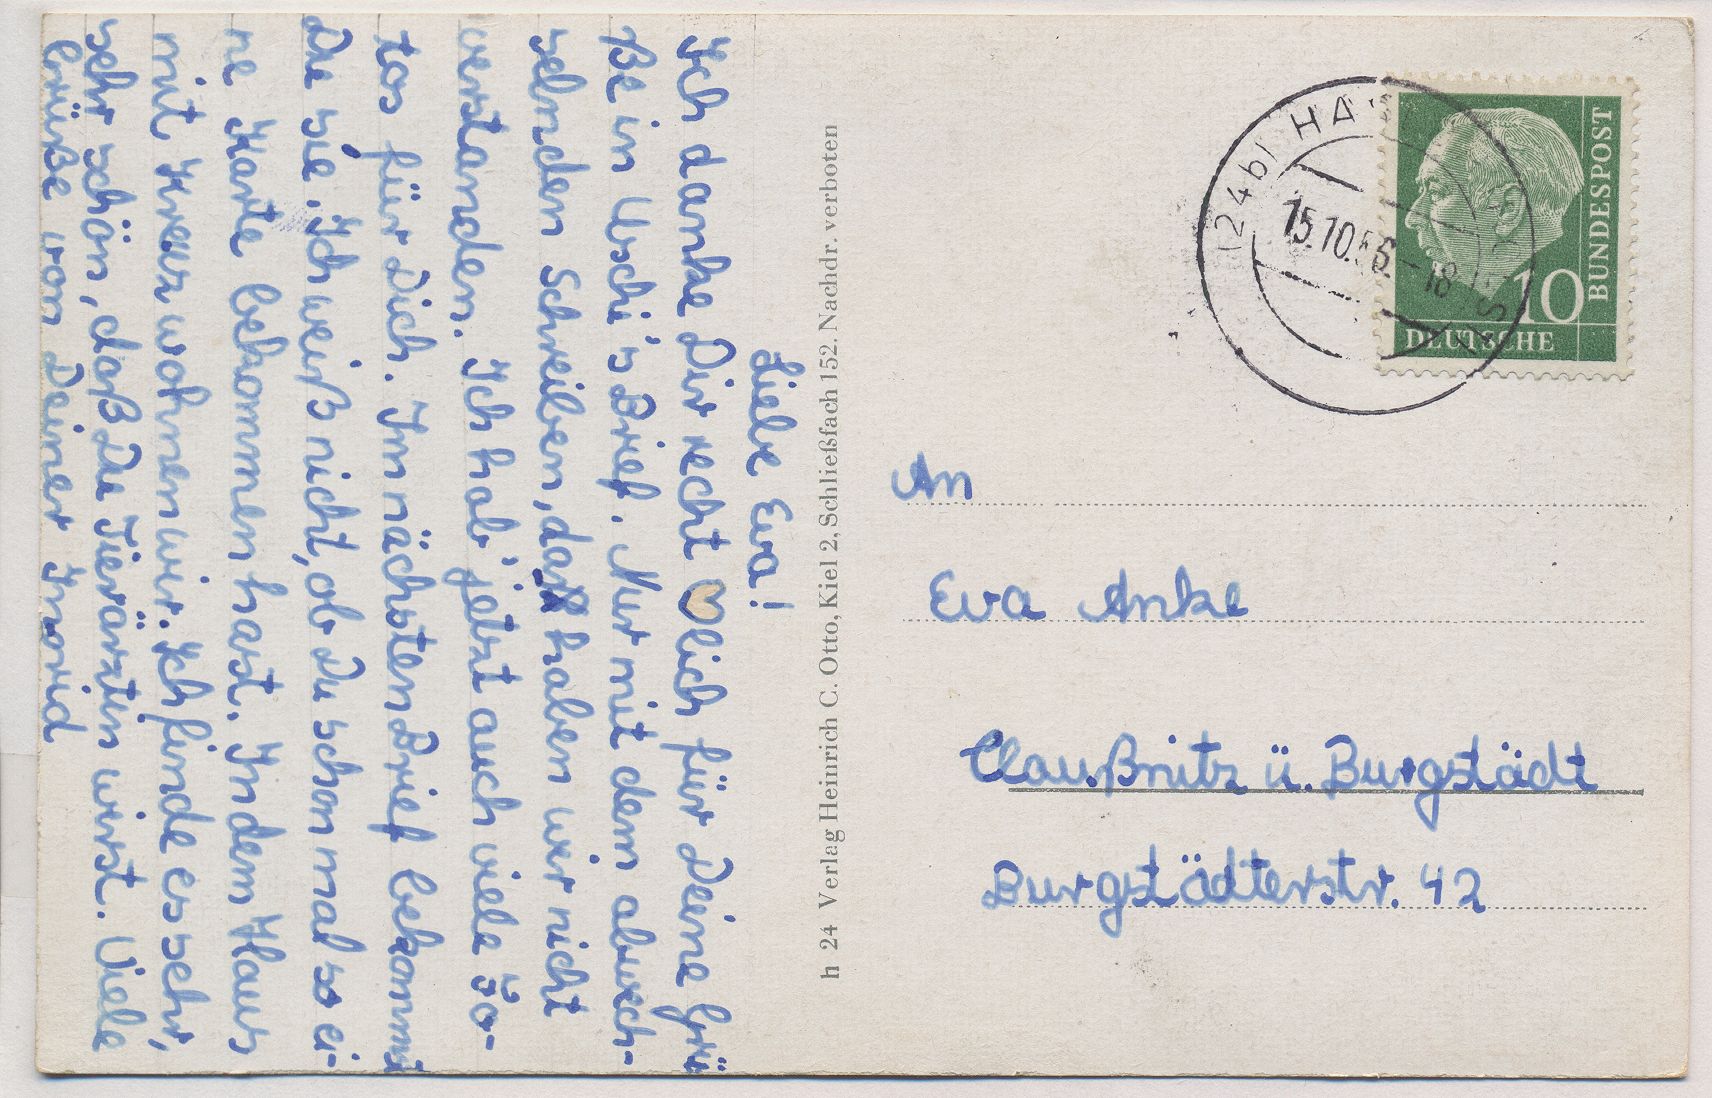 Liebe Eva!
Ich danke Dir recht lich für Deine Grü-
ße in Uschi's Brief. Nur mit dem abwech-
selnden Schreiben, daß haben wir nicht
verstanden. Ich hab' jetzt auch viele Fo-
tos für Dich. Im nächsten Brief bekommst
Du sie. Ich weiß nicht, ob Du schon mal so ei-
ne Karte bekommen hast. In dem Haus
mit Kreuz wohnen wir. Ich finde es sehr,
sehr schön, daß Du Tierärztin wirst. Viele
Grüße von Deiner Ingrid
h 24 Verlag Heinrich C. Otto, Kiel 2, Schließfach 152. Nachdr. verboten
(24b) HA
15.10.56.-18
10
BUNDESPOST
DEUTSCHE
An
Eva Anke
Claußnitz ü. Burgstädt
Burgstädterstr. 42